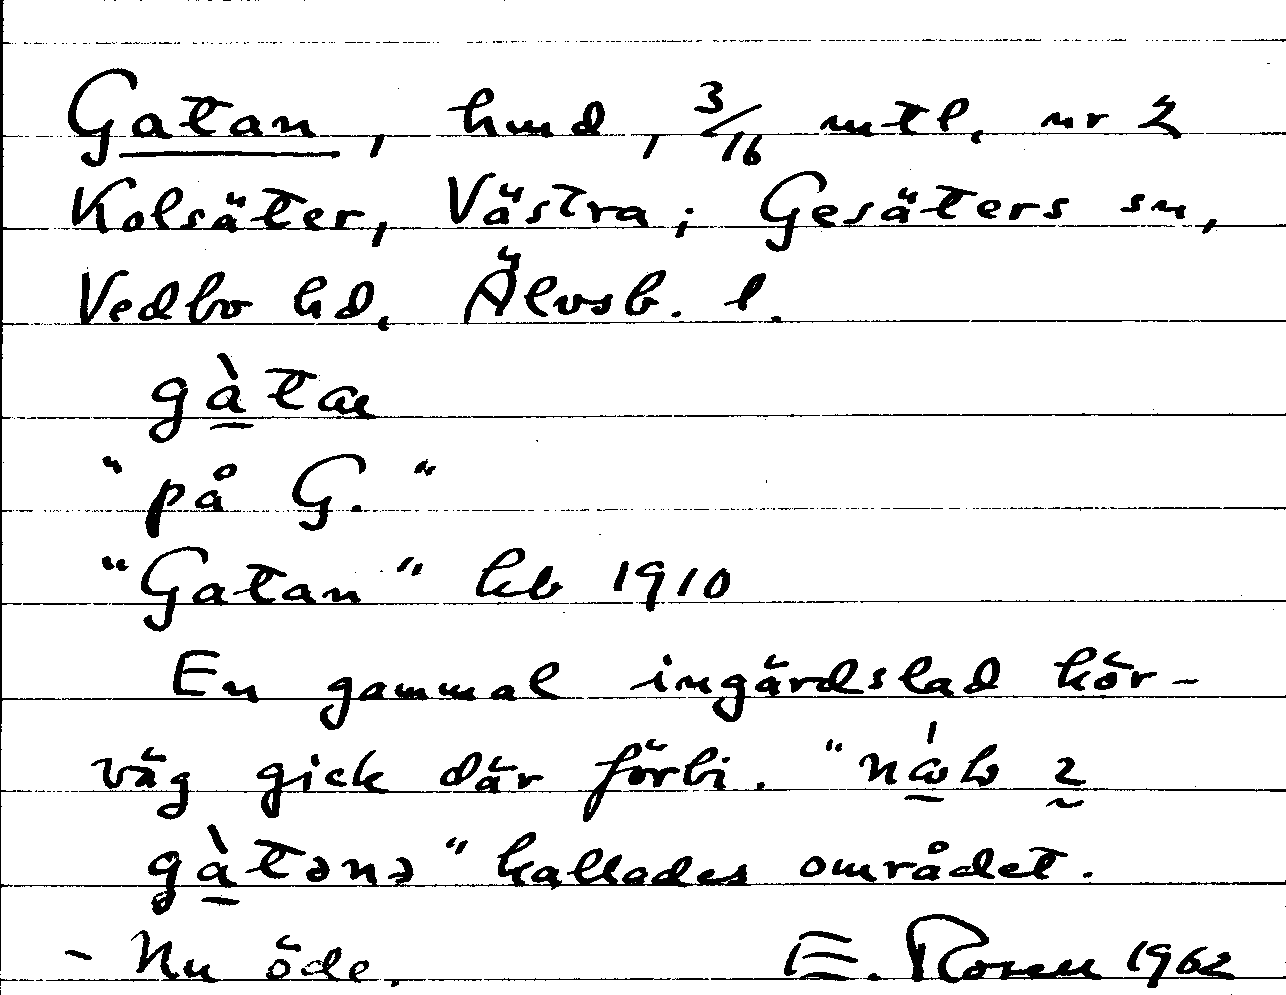 Gatan, hmd, 3/16 mtl. nr 2
Kolsäter, Västra; Gesäters sn,
Vedbo hd. Älvsb. l.
gàtaɴ
"på G."
"Gatan" kb 1910
En gammal ingärdslad kör-
väg gick där förbi. "
gàtənə" kallades området.
- Nu öde. E. Rosen 1962